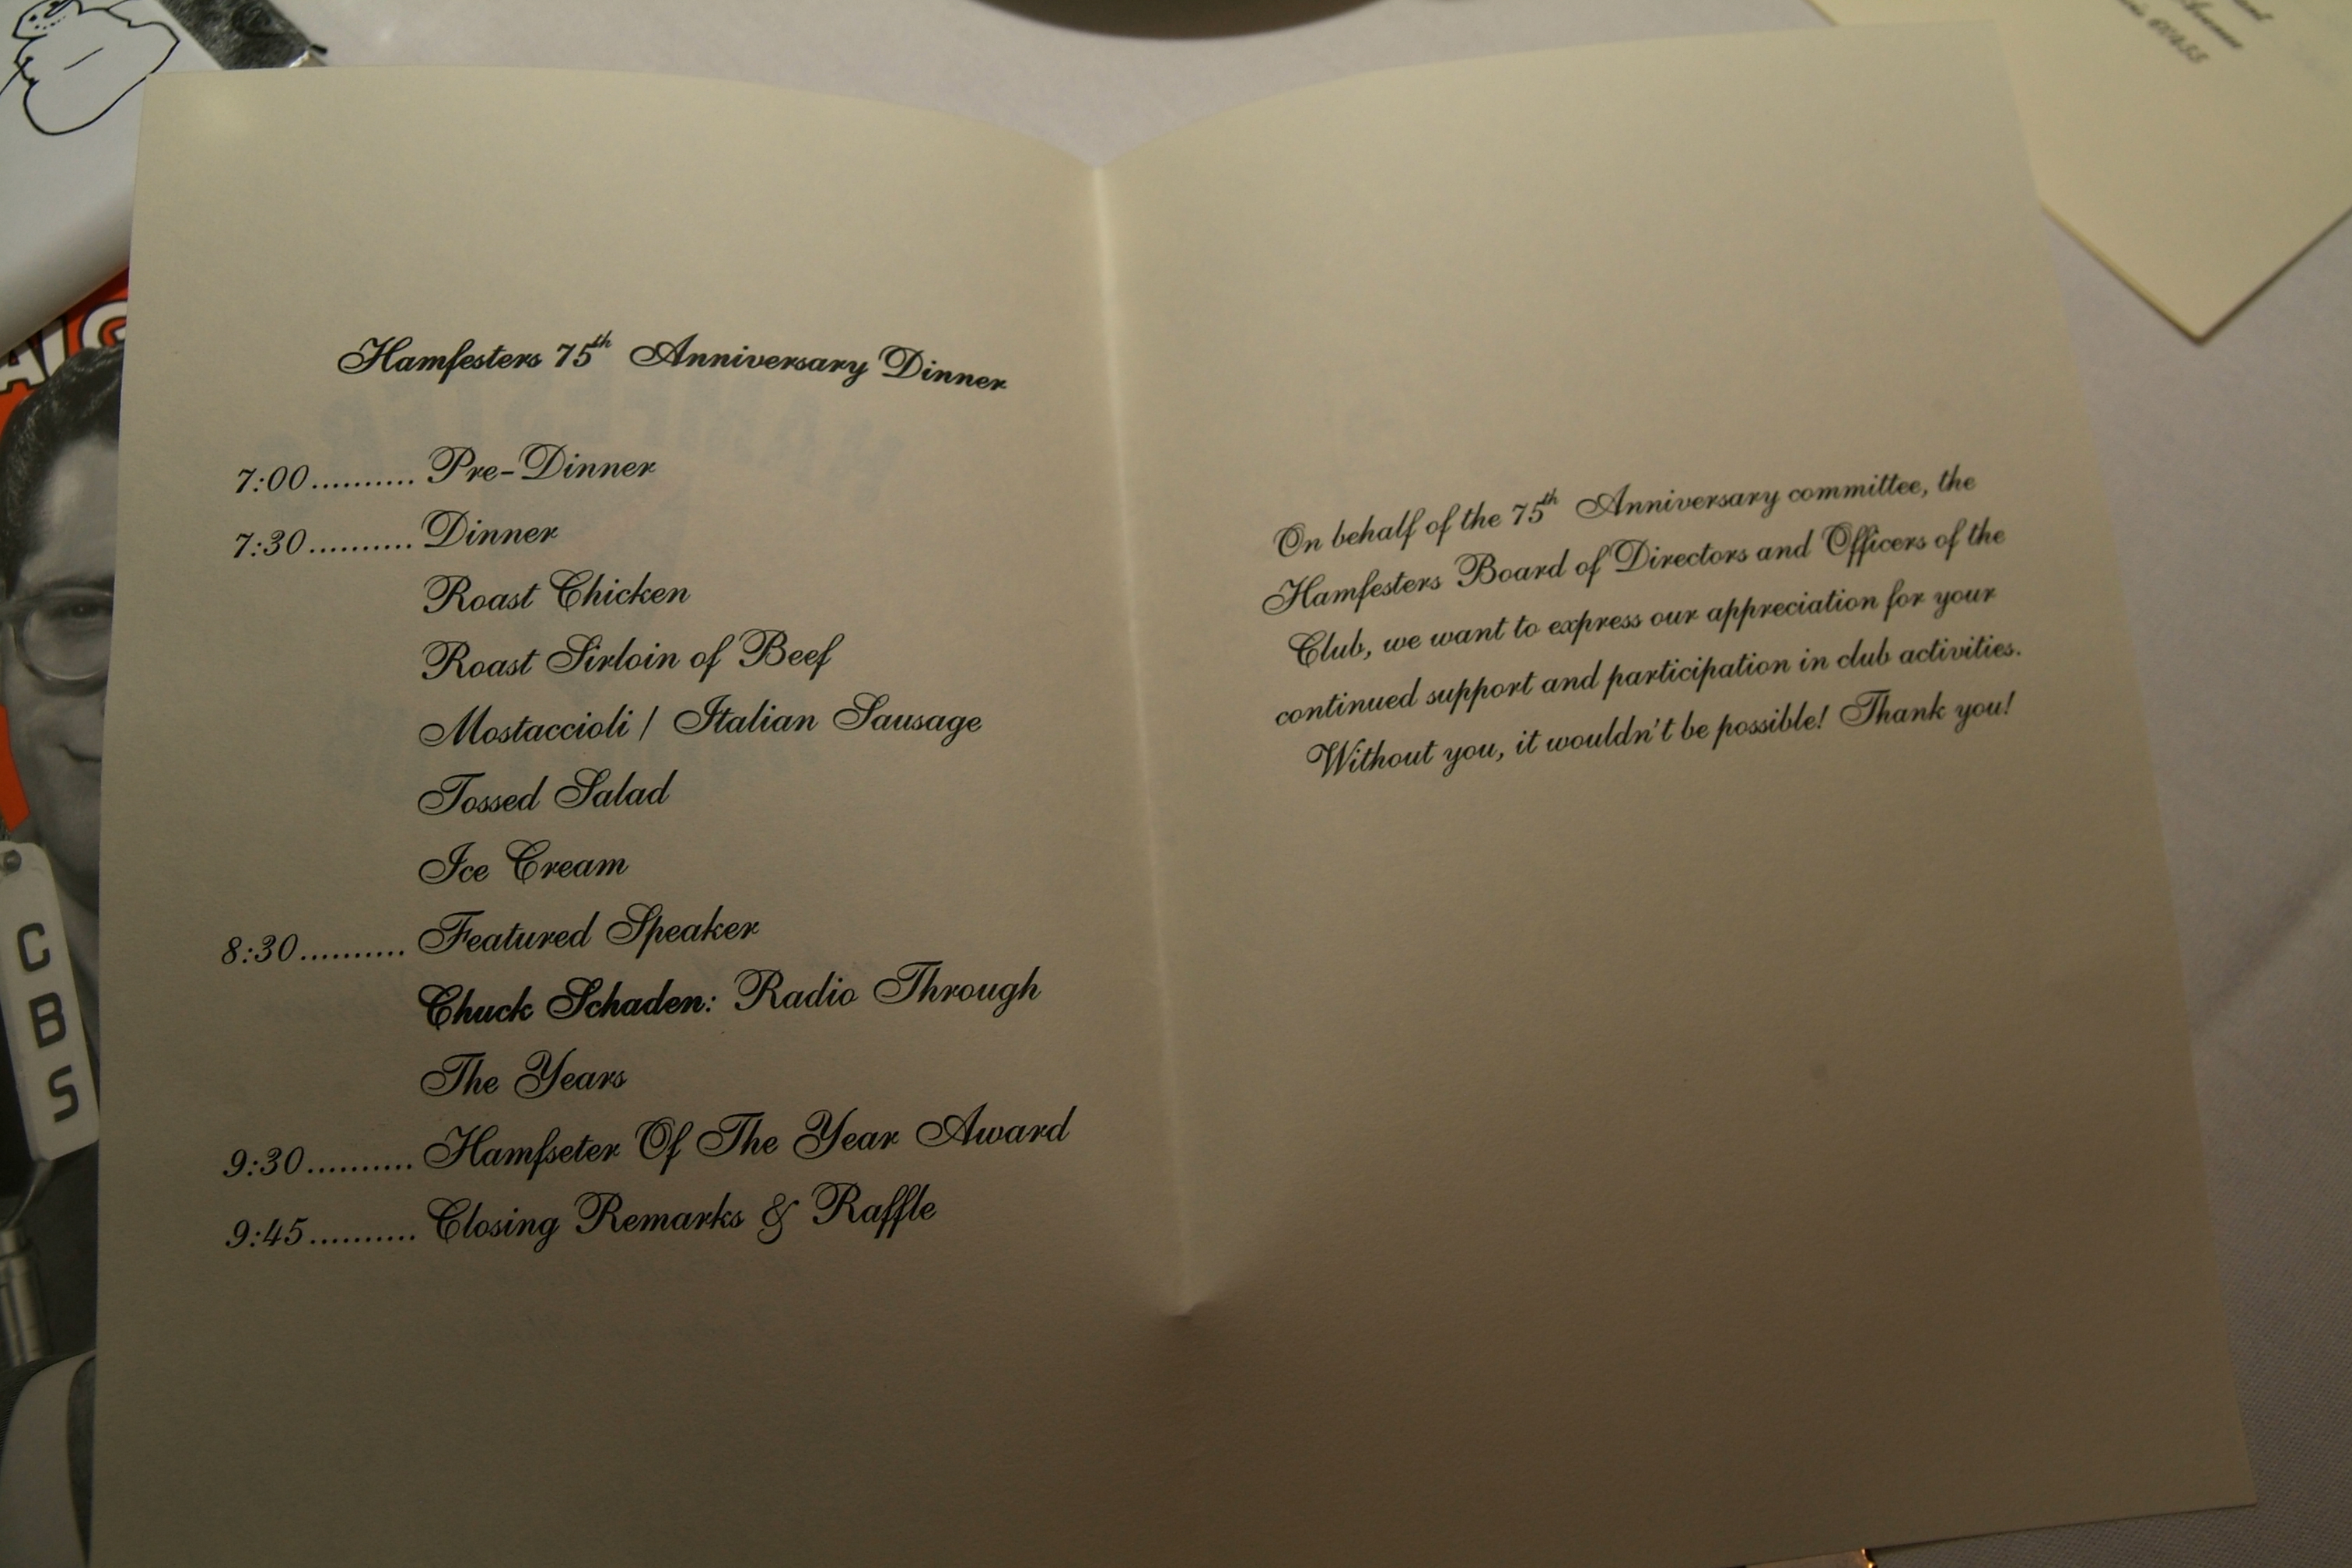 Hamfesters 75th Anniversary Dinner
7:00.......... Pre-Dinner
7:30.......... Dinner
Roast Chicken
Roast Sirloin of Beef
Mostaccioli / Italian Sausage
Tossed Salad
Ice Cream
8:30.......... Featured Speaker
Chuck Schaden: Radio Through
The Years
9:30.......... Hamfseter Of The Year Award
9:45.......... Closing Remarks & Raffle
On behalf of the 75th Anniversary committee, the
Hamfesters Board of Directors and Officers of the
Club, we want to express our appreciation for your
continued support and participation in club activities.
Without you, it wouldn't be possible! Thank you!
C
B
S